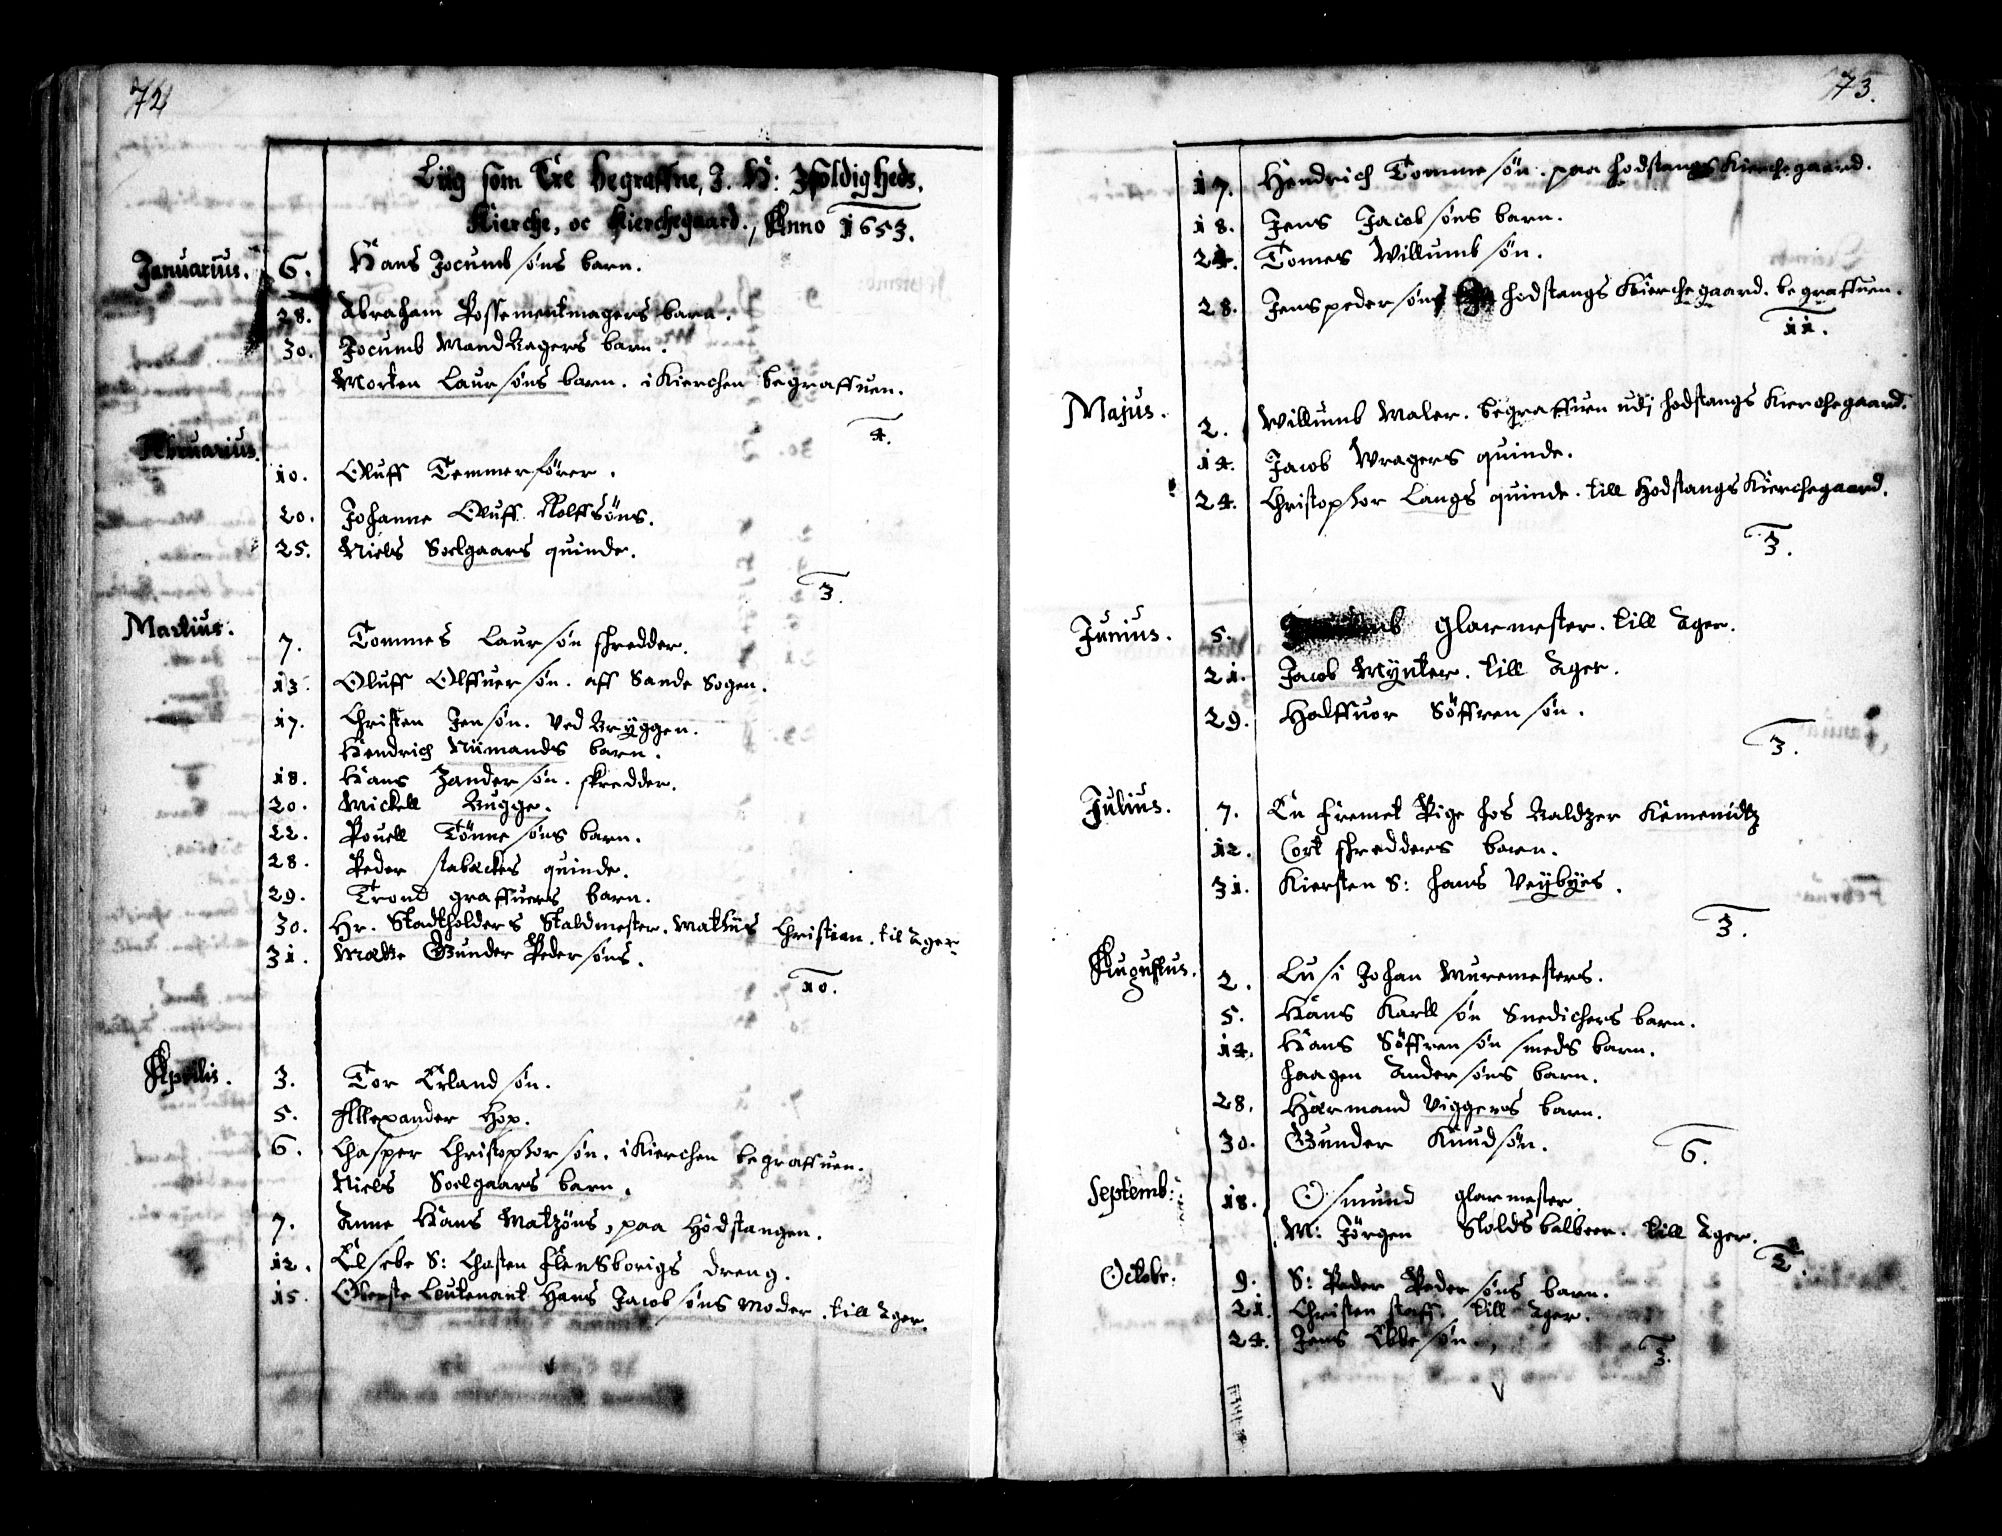 72
Liig som Ere begraffne, I. H: 3foldigheds.
Kierche, oc Kierchegaard, Anno 1653.
Januarius. 6. Hans Jocumb søns barn.
28. Abraham Possementmagers barn.
30. Jocumb Mand bagers barn.
Morten Laursøns barn. i Kierchen begraffuen.
4.
Februarius.
10. Oluff Temmerfører.
20. Johanne Oluff Rolffsøns.
25. Niels Soelgaars quinde.
3.
Martius.
7. Tommes Laursøn skredder.
13. Oluff Olffuersøn. aff Sande Sogen.
17. Christen Jensøn. ved Bryggen.
Hendrich Niimands barn.
18. Hans Zandersøn. skredder.
20. Mickell Bugge.
22. Pouell Tønnesøns barn.
28. Peder stabackes quinde.
29. Trond graffuers barn.
30. Hr. Stadtholders Staldmester. Mathiis Christian. til Ager
31. Mætte Gunder Pedersøns.
10.
Aprilis. 3. Tor Erlandsøn.
5. Allexander Hop.
6. Chasper Christophorsøn. i Kierchen begraffuen.
Niels Soelgaars barn.
7. Anne Hans Matzøns, paa Hodstangen.
12. Elsebe S: Chasten Flensborigs dreng.
15. Oberste Leutenant Hans Jacobsøns Moder. till Ager.
73.
17. Hendrich Tommesøn. paa hodstangs Kierchegaard.
18. Jens Jacobsøns barn.
24. Tomes Willumbsøn.
28. Jens pedersøns hodstangs Kierchegaard. begraffuen.
11.
Majus. 2. Willumb Maler. begraffuen udj hodstangs Kierchegaard.
14. Jacob Wragers quinde.
24. Christophor Langs quinde. till Hodstangs Kierchegaard.
3.
Junius. 5. glarmester. till Ager.
21. Jacob Mynter. till Ager.
29. Halffuor Søffrensøn.
3.
Julius. 7. En fremet Pige hos Baldzer Kemenidtz
12. Cort skredders barn.
31. Kiersten S: hans Veybyes.
3.
Augustus. 2. Lusi Johan Muremesters.
5. Hans Karllsøn Snedichers barn.
14. Hans Søffrensøn smeds barn.
haagen Andersøns barn.
28. Harmand Viggers barn.
30. Gunder Knudsøn.
6.
Septemb: 18. Osmund glarmester
M: Jørgen Slolds balbeer. till Ager.
2.
Octobr: 9. S: Peder Pedersøns barn.
21. Christen staff. till Ager.
24. Jens Ebbesøn.
3.